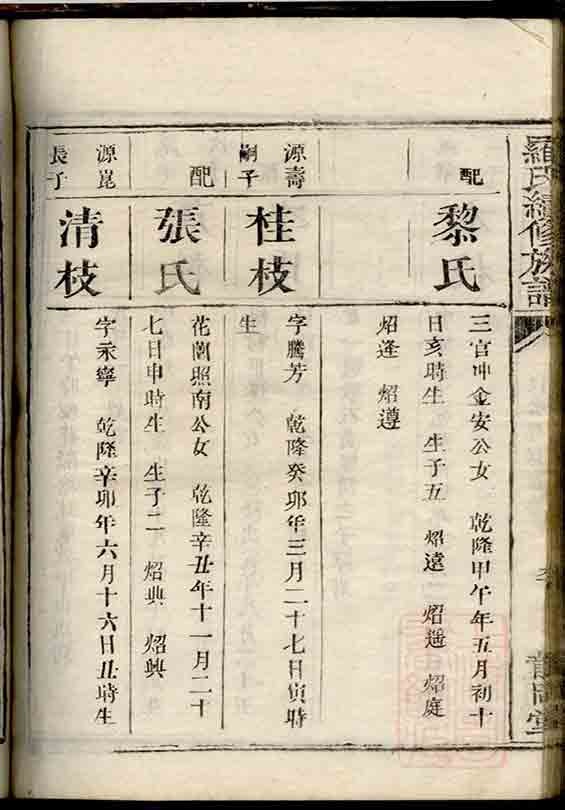 羅氏續修族譜
配
黎氏
三官坤金安公女 乾隆甲午年五月初十
日亥時生 生子五 炤遠 炤遥 炤庭
炤逢 炤遵
源壽
嗣子
桂枝
字騰芳 乾隆癸卯年三月二十七日寅時
生
配
張氏
花園照南公女 乾隆辛丑年十一月二十
七日申時生 生子二 炤典 炤興
源崑
長子
清枝
字永寧 乾隆辛卯年六月十六日丑時生